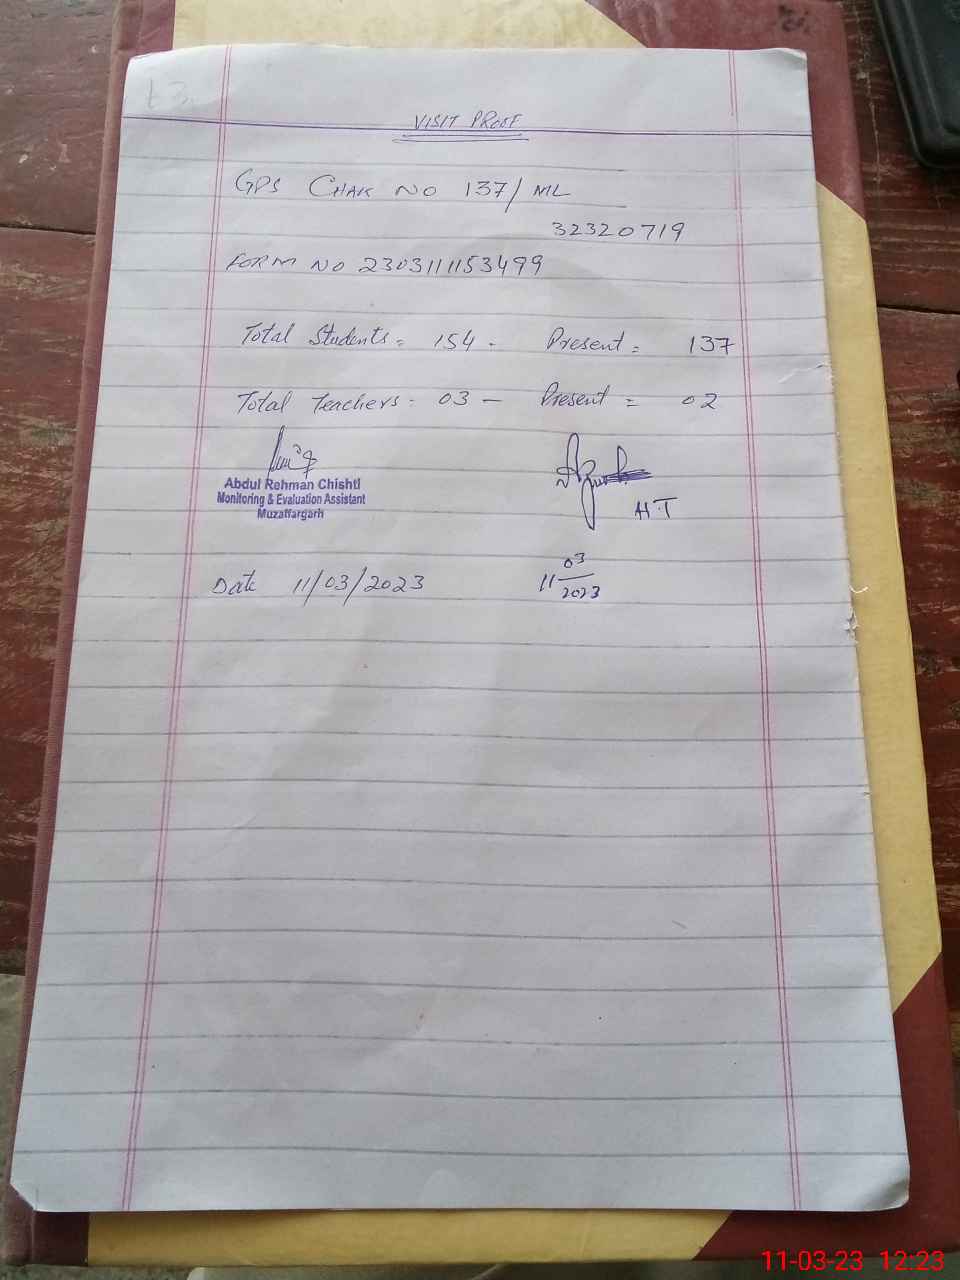 VISIT PROOF
GPS CHAK NO 137/ML
32320719
FORM NO 2303111153499
Total Students = 154 - Present = 137
Total Teachers = 03 - Present = 02
Abdul Rehman Chishti
Monitoring & Evaluation Assistant
Muzaffargarh
HT
Date 11/03/2023
11 03/2023
11-03-23 12:23